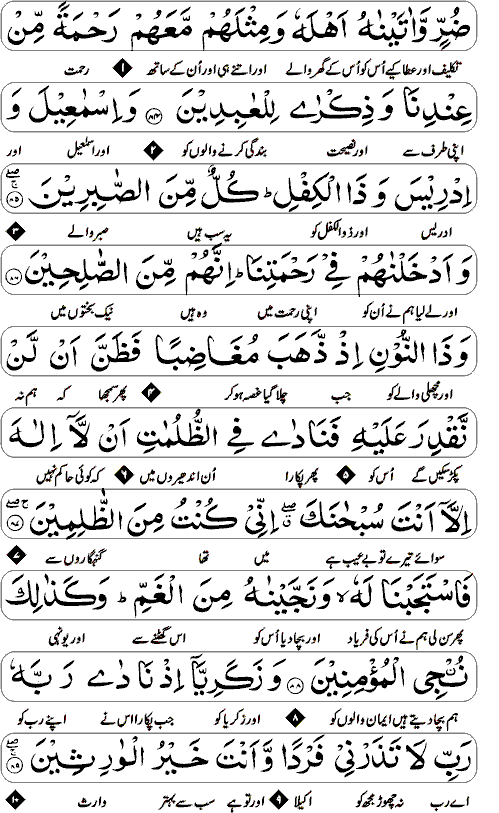 ضُرٍّ وَّاٰتَيْنٰهُ اَهْلَهٗ وَمِثْلَهُمْ مَّعَهُمْ رَحْمَةً مِّنْ
تکلیف اور عطا کیے اُس کو اُس کے گھر والے اور اتنے ہی اور اُن کے ساتھ ۱ رحمت
عِنْدِنَا وَذِكْرٰى لِلْعٰبِدِيْنَ ۸۴ وَاِسْمٰعِيْلَ وَ
اپنی طرف سے اور نصیحت بندگی کرنے والوں کو ۲ اور اسمٰعیل اور
اِدْرِيْسَ وَذَا الْكِفْلِ ؕ كُلٌّ مِّنَ الصّٰبِرِيْنَ ۸۵
ادریس اور ذوالکفل کو یہ سب ہیں صبر والے ۳
وَاَدْخَلْنٰهُمْ فِيْ رَحْمَتِنَا ؕ اِنَّهُمْ مِّنَ الصّٰلِحِيْنَ ۸۶
اور لے لیا ہم نے اُن کو اپنی رحمت میں وہ ہیں نیک بختوں میں
وَذَا النُّوْنِ اِذْ ذَّهَبَ مُغَاضِبًا فَظَنَّ اَنْ لَّنْ
اور مچھلی والے کو جب چلا گیا غصہ ہو کر ۴ پھر سمجھا کہ ہم نہ
نَّقْدِرَ عَلَيْهِ فَنَادٰى فِي الظُّلُمٰتِ اَنْ لَّاۤ اِلٰهَ
پکڑ سکیں گے اُس کو ۵ پھر پکارا اُن اندھیروں میں ۶ کہ کوئی حاکم نہیں
اِلَّاۤ اَنْتَ سُبْحٰنَكَ ۖ اِنِّيْ كُنْتُ مِنَ الظّٰلِمِيْنَ ۸۷
سوائے تیرے تو بے عیب ہے میں تھا گنہگاروں سے ۷
فَاسْتَجَبْنَا لَهٗ ۙ وَنَجَّيْنٰهُ مِنَ الْغَمِّ ؕ وَكَذٰلِكَ
پھر سن لی ہم نے اُس کی فریاد اور بچا دیا اُس کو اس گھٹنے سے اور یونہی
نُـنْجِي الْمُؤْمِنِيْنَ ۸۸ وَزَكَرِيَّاۤ اِذْ نَادٰى رَبَّهٗ
ہم بچا دیتے ہیں ایمان والوں کو ۸ اور زکریا کو جب پکارا اس نے اپنے رب کو
رَبِّ لَا تَذَرْنِيْ فَرْدًا وَّاَنْتَ خَيْرُ الْوٰرِثِيْنَ ۸۹
اے رب نہ چھوڑ مجھ کو اکیلا ۹ اور تو ہے سب سے بہتر وارث ۱۰